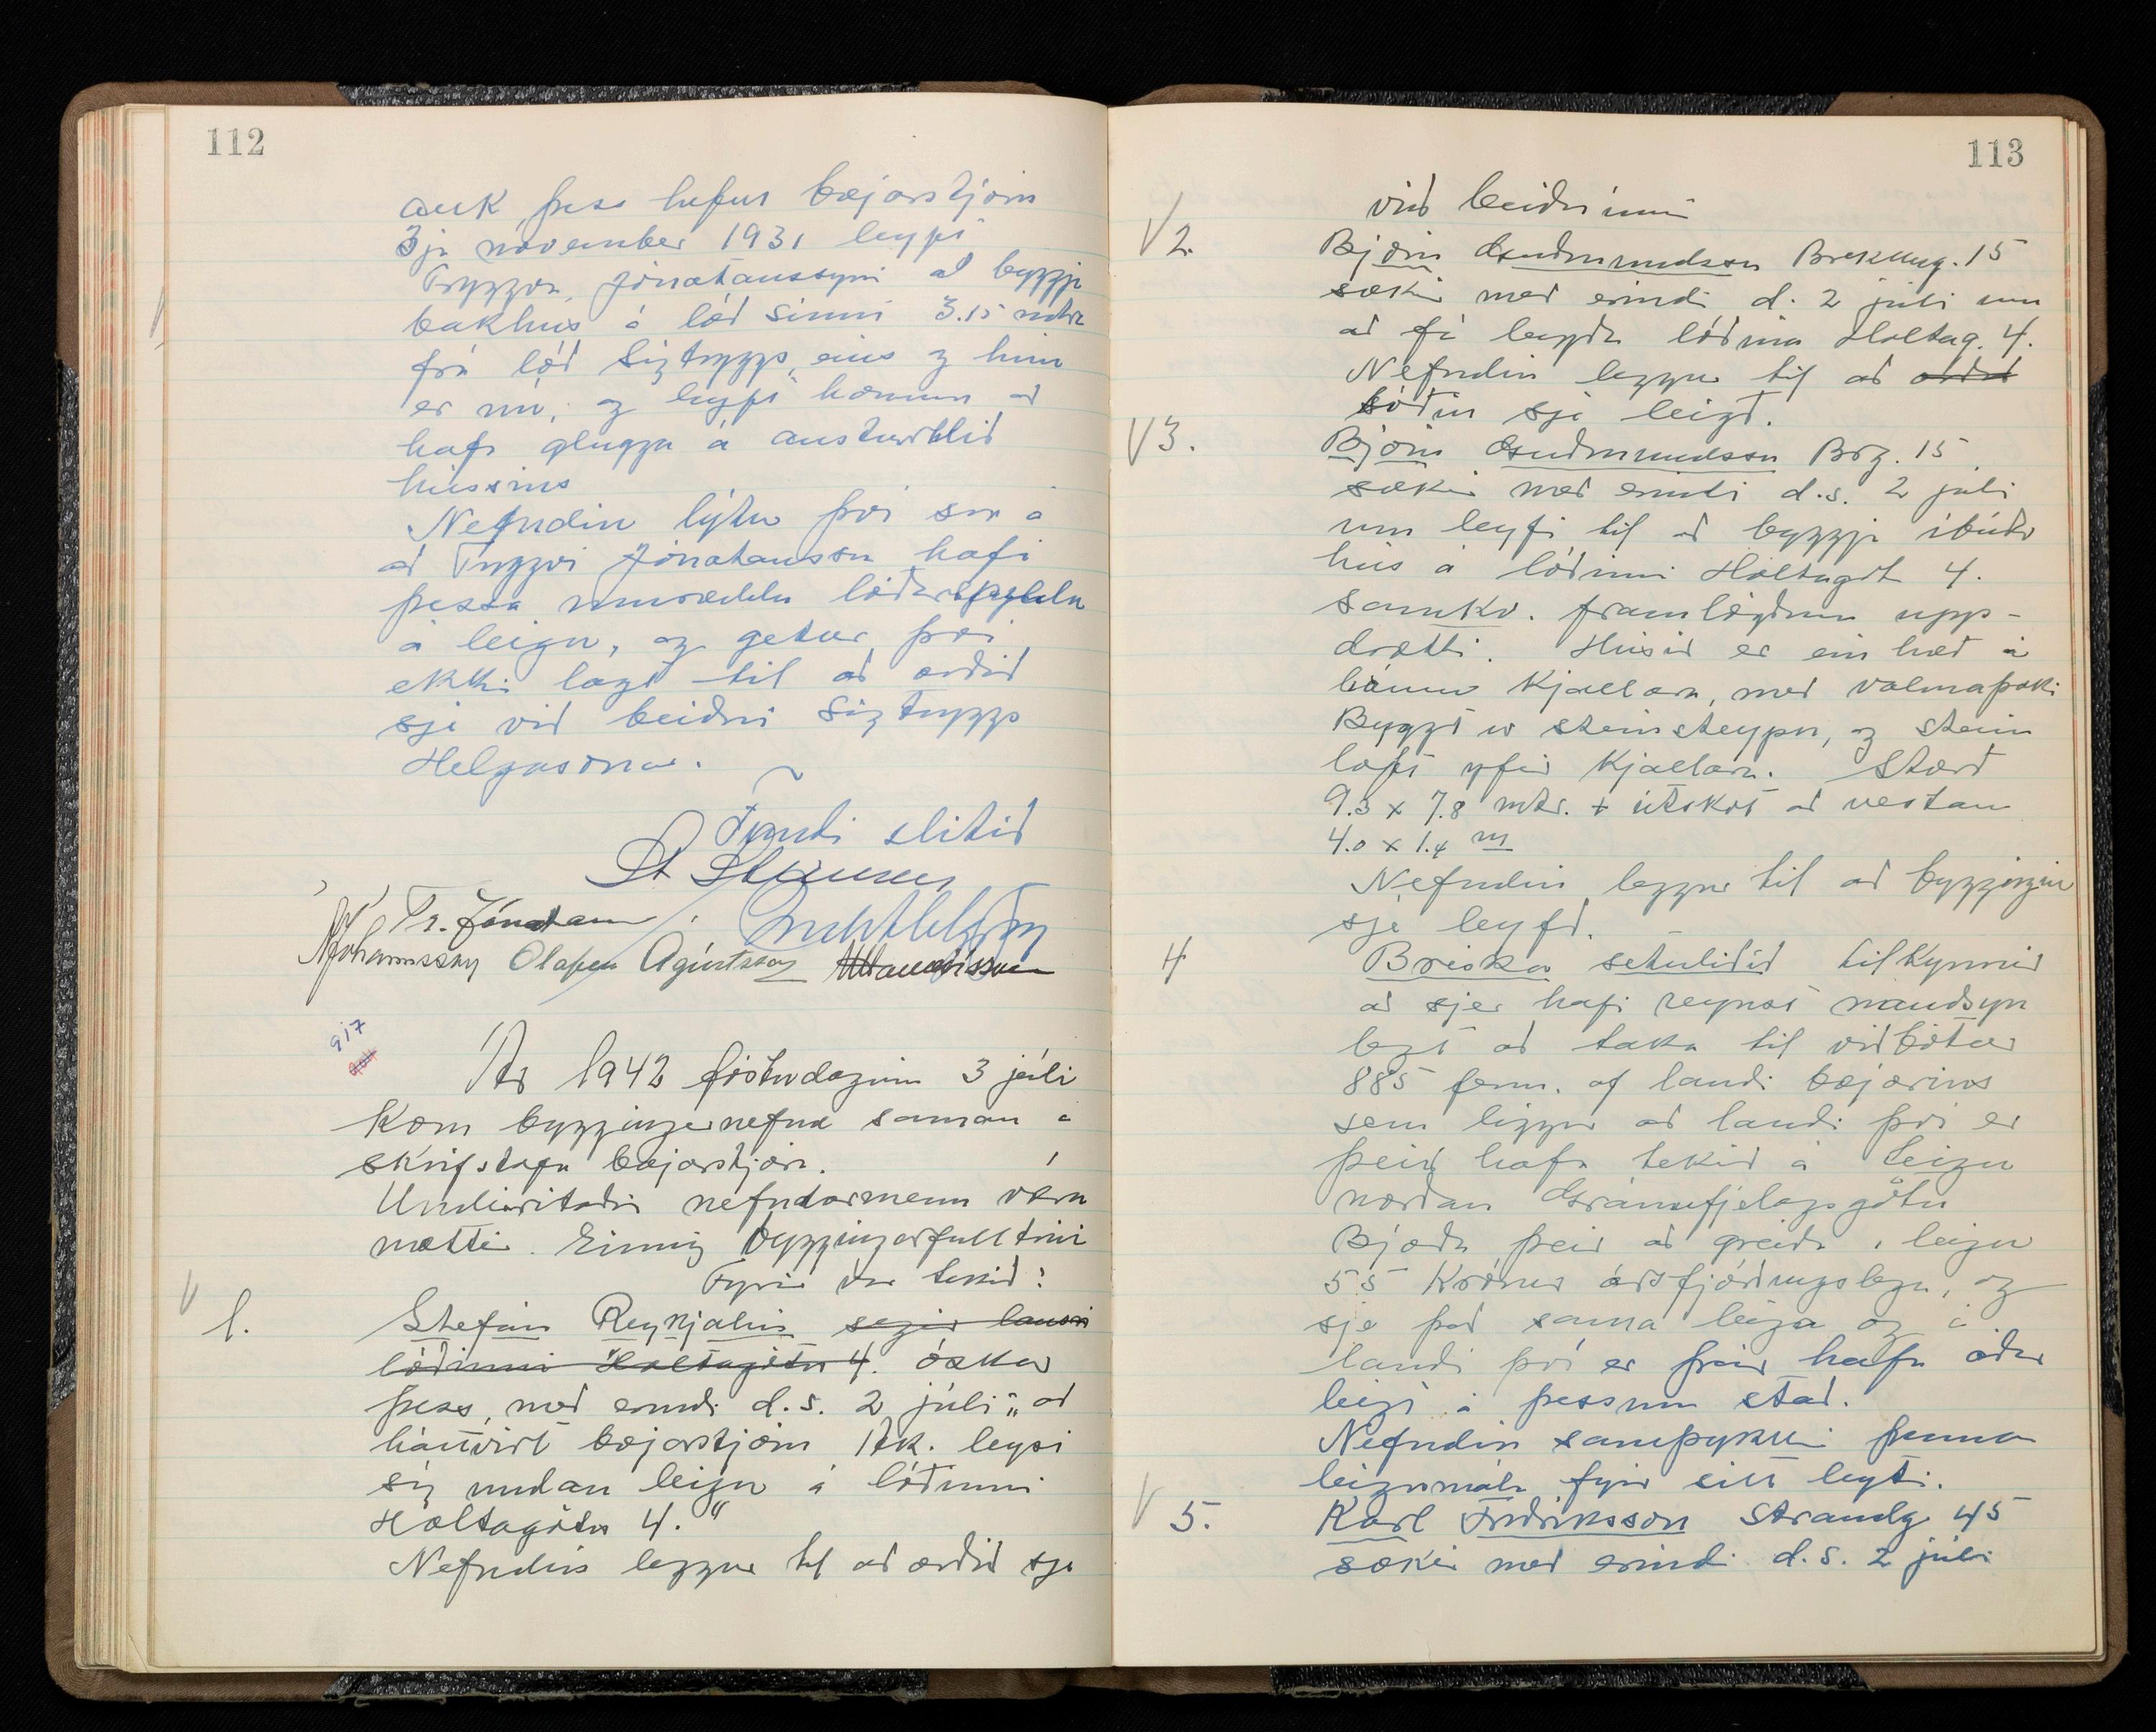 112
auk þess hefur bæjarstjórn
3ja november 1931 leyft
Tryggva Jónatanssyni að byggja
bakhús á lóð sinni 3.15 mtr
frá lóð Sigtryggs, eins og hún
er nú, og leyft honum að
hafa glugga á austurhlið
hússins
Nefndin lýtur því svo á
að Tryggvi Jónatansson hafi
þessa umræddu lóðarspyldu
á leigu, og getur því
ekki lagt til að orðið
sje við beiðni Sigtryggs
Helgasonar.
Fundi slitið
St Steinsen
Tr. Jónatann
Jóhannsson Olafur Ágústsson
9/7
Ár 1942 föstudaginn 3 júlí
kom bygginganefnd saman á
skrifstofu bæjarstjóra.
Undirritaðir nefndarmenn voru
mættir. Einnig byggingarfulltrúi
Fyrir var tekið:
V 1. Stefán Reykjalín segir lausri
lóðinni Holtagötu 4. óskar
þess, með erindi d.s. 2 júlí „að
háttvirt bæjarstjórn Ak. leysi
sig undan leigu á lóðinni
Holtagötu 4.“
Nefndin leggur til að orðið sje
113
við beiðninni
V 2. Björn Guðmundsson Brekkug. 15
sækir með erindi d. 2 júlí um
að fá leigða lóðina Holtag. 4.
Nefndin leggur til að orðið
lóðin sje leigð.
V 3. Björn Guðmundsson Brg. 15
sækir með erindi d.s. 2 júlí
um leyfi til að byggja íbúðar
hús á lóðinni Holtagöt 4.
samkv. framlögðum upp-
drætti. Húsið er ein hæð á
háum kjallara, með valmaþaki
Byggt úr steinsteypu, og stein
loft yfir kjallara. Stærð
9.3 x 7.8 mtr. + útskot að vestan
4.0 x 1.4 m
Nefndin leggur til að byggingin
sje leyfð.
4 Breska setuliðið tilkynnir
að sjer hafi reynst nauðsyn
legt að taka til viðbótar
885 ferm. af landi bæjarins
sem liggur að landi því er
þeir hafa tekið á leigu
norðan Gránufjelagsgötu
Bjóða þeir að greiða í leigu
55 krónur ársfjórðungslega, og
sje það sama leiga og á
landi því er þeir hafa áður
leigt á þessum stað.
Nefndin samþykkir þenna
leigumála fyrir sitt leyti.
V 5. Karl Friðriksson Strandg 45
sækir með erindi d.s. 2 júlí